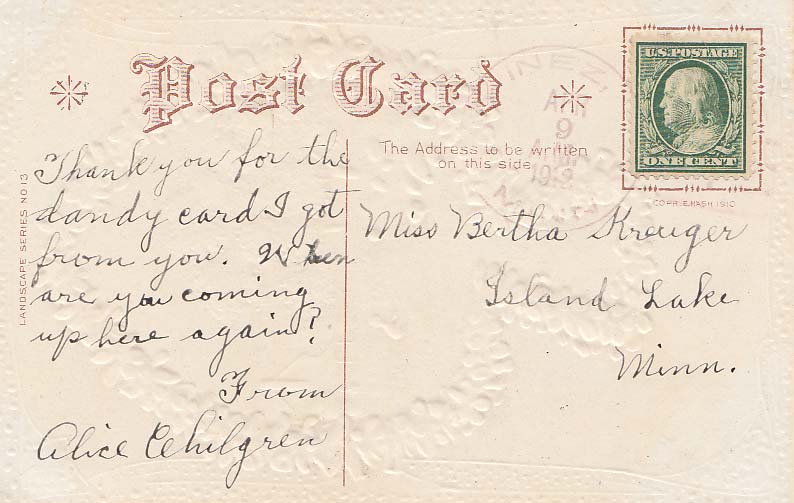 Post Card
U.S. POSTAGE
ONE CENT
The Address to be written
on this side.
COPR. E. NASH 1910
LANDSCAPE SERIES NO 13
APR
9
A.M.
Thank you for the
dandy card I got
from you. When
are you coming
up here again?
From
Alice
Miss Bertha Kreuger
Island Lake
Minn.